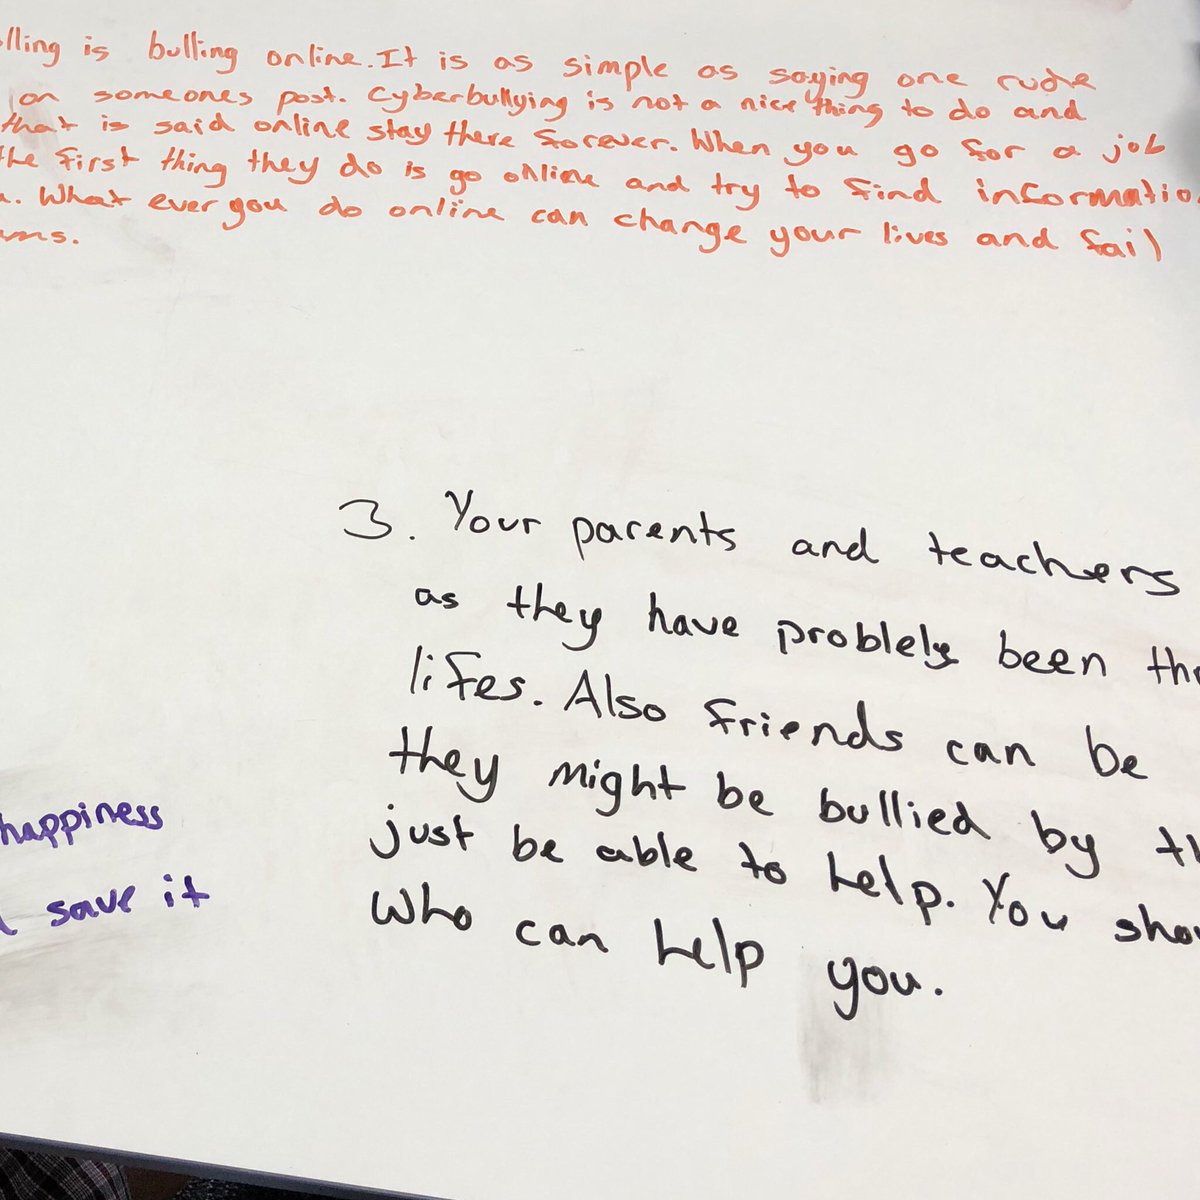 lling is bulling online. It is as simple as saying one rude
on someones post. Cyberbullying is not a nice thing to do and
that is said online stay there forever. When you go for a job
the first thing they do is go online and try to find informatio
. What ever you do online can change your lives and fail
ams.
3. Your parents and teachers
as they have problely been thr
lifes. Also friends can be
they might be bullied by th
just be able to help. You shou
who can help you.
happiness
save it